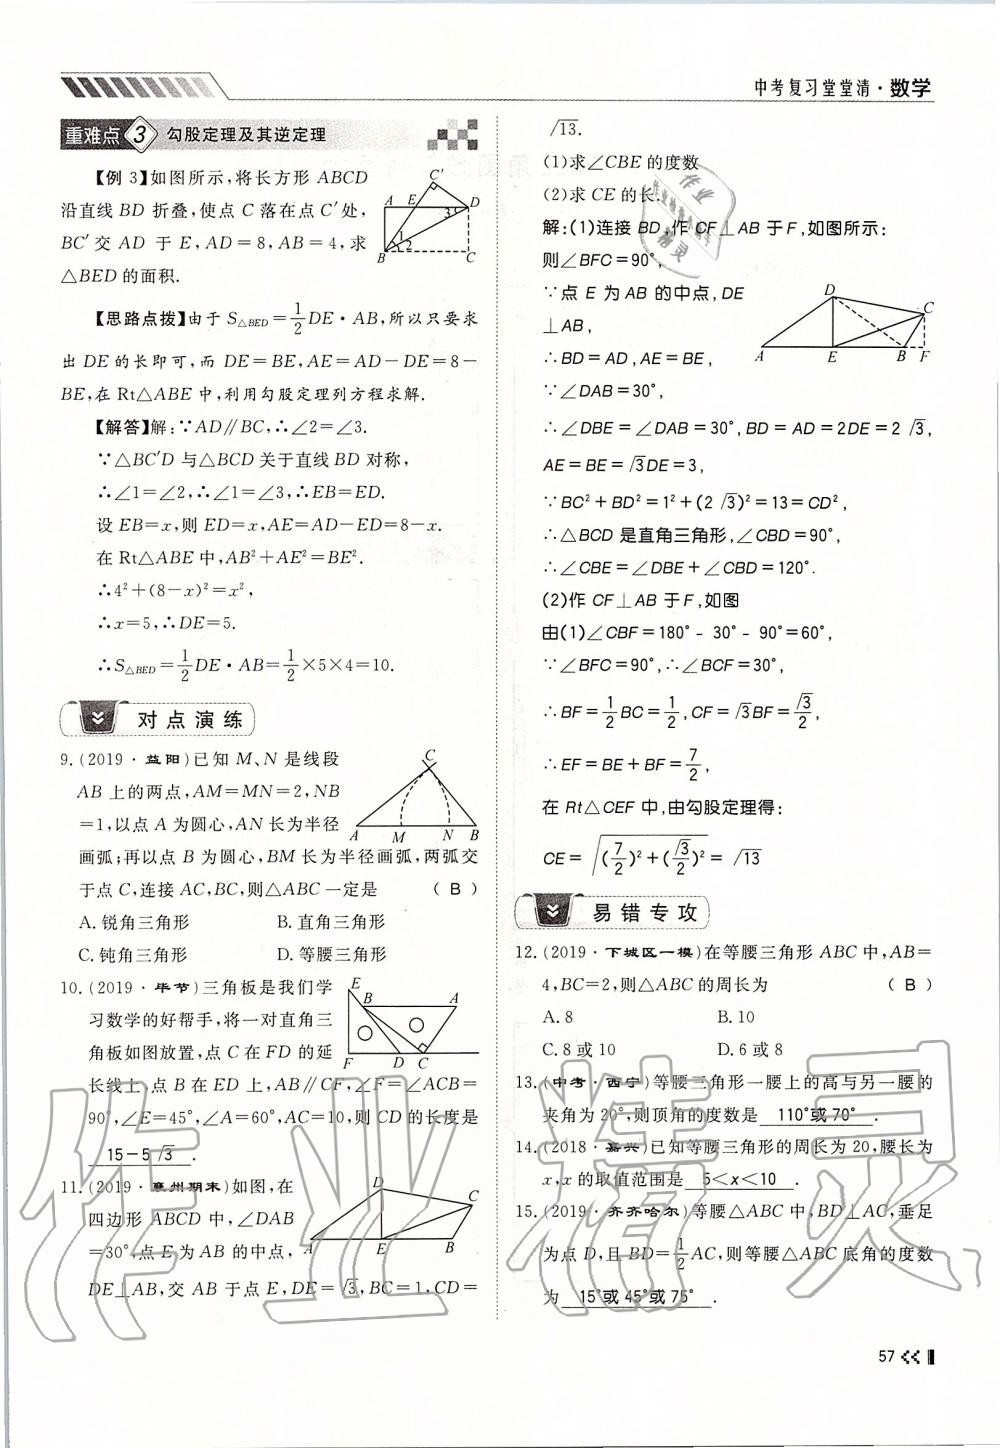 中考复习堂堂清·数学
重难点 3 勾股定理及其逆定理
【例 3】如图所示,将长方形 ABCD
沿直线 BD 折叠,使点 C 落在点 C′处,
BC′交 AD 于 E,AD=8,AB=4,求
△BED 的面积.
A E C′ D 3 1 2 B C
【思路点拨】由于 S△BED=1/2DE·AB,所以只要求
出 DE 的长即可,而 DE=BE,AE=AD-DE=8-
BE,在 Rt△ABE 中,利用勾股定理列方程求解.
【解答】解:∵AD∥BC,∴∠2=∠3.
∵△BC′D 与△BCD 关于直线 BD 对称,
∴∠1=∠2,∴∠1=∠3,∴EB=ED.
设 EB=x,则 ED=x,AE=AD-ED=8-x.
在 Rt△ABE 中,AB²+AE²=BE².
∴4²+(8-x)²=x²,
∴x=5,∴DE=5.
∴S△BED=1/2DE·AB=1/2×5×4=10.
对点演练
9.(2019·益阳)已知 M、N 是线段
AB 上的两点,AM=MN=2,NB
=1,以点 A 为圆心,AN 长为半径
画弧;再以点 B 为圆心,BM 长为半径画弧,两弧交
于点 C,连接 AC,BC,则△ABC 一定是 ( B )
C A M N B
A.锐角三角形 B.直角三角形
C.钝角三角形 D.等腰三角形
10.(2019·毕节)三角板是我们学
习数学的好帮手,将一对直角三
角板如图放置,点 C 在 FD 的延
长线上,点 B 在 ED 上,AB∥CF,∠F=∠ACB=
90°,∠E=45°,∠A=60°,AC=10,则 CD 的长度是
15-5√3 .
E B A F D C
11.(2019·襄州期末)如图,在
四边形 ABCD 中,∠DAB
=30°,点 E 为 AB 的中点,
DE⊥AB,交 AB 于点 E,DE=√3,BC=1,CD=
D C A E B
√13.
(1)求∠CBE 的度数
(2)求 CE 的长.
解:(1)连接 BD,作 CF⊥AB 于 F,如图所示:
则∠BFC=90°,
∵点 E 为 AB 的中点,DE
⊥AB,
∴BD=AD,AE=BE,
∵∠DAB=30°,
D C A E B F
∴∠DBE=∠DAB=30°,BD=AD=2DE=2√3,
AE=BE=√3DE=3,
∵BC²+BD²=1²+(2√3)²=13=CD²,
∴△BCD 是直角三角形,∠CBD=90°,
∴∠CBE=∠DBE+∠CBD=120°.
(2)作 CF⊥AB 于 F,如图
由(1)∠CBF=180°-30°-90°=60°,
∵∠BFC=90°,∴∠BCF=30°,
∴BF=1/2BC=1/2,CF=√3BF=√3/2,
∴EF=BE+BF=7/2,
在 Rt△CEF 中,由勾股定理得:
CE=√((7/2)²+(√3/2)²)=√13
易错专攻
12.(2019·下城区一模)在等腰三角形 ABC 中,AB=
4,BC=2,则△ABC 的周长为 ( B )
A.8 B.10
C.8 或 10 D.6 或 8
13.(中考·西宁)等腰三角形一腰上的高与另一腰的
夹角为 20°,则顶角的度数是 110°或 70° .
14.(2018·嘉兴)已知等腰三角形的周长为 20,腰长为
x,x 的取值范围是 5<x<10 .
15.(2019·齐齐哈尔)等腰△ABC 中,BD⊥AC,垂足
为点 D,且 BD=1/2AC,则等腰△ABC 底角的度数
为 15°或 45°或 75° .
57
作业精灵